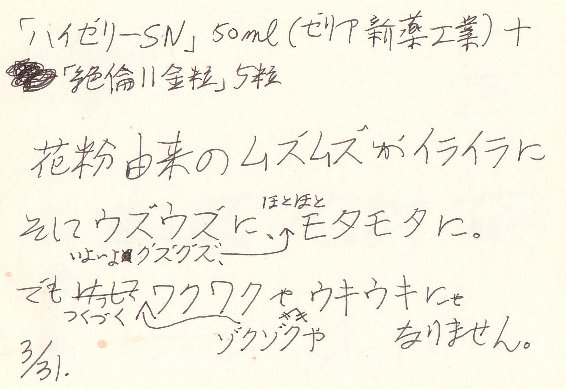 「ハイゼリーSN」50ml(ゼリア新薬工業)+
「絶倫11金粒」5粒
花粉由来のムズムズがイライラに
ほとほと
そしてウズウズに、モタモタに。
いよいよグズグズ、
でもけっしてワクワクやウキウキに
つくづく
ゾクゾクや
なりません。
3/31.